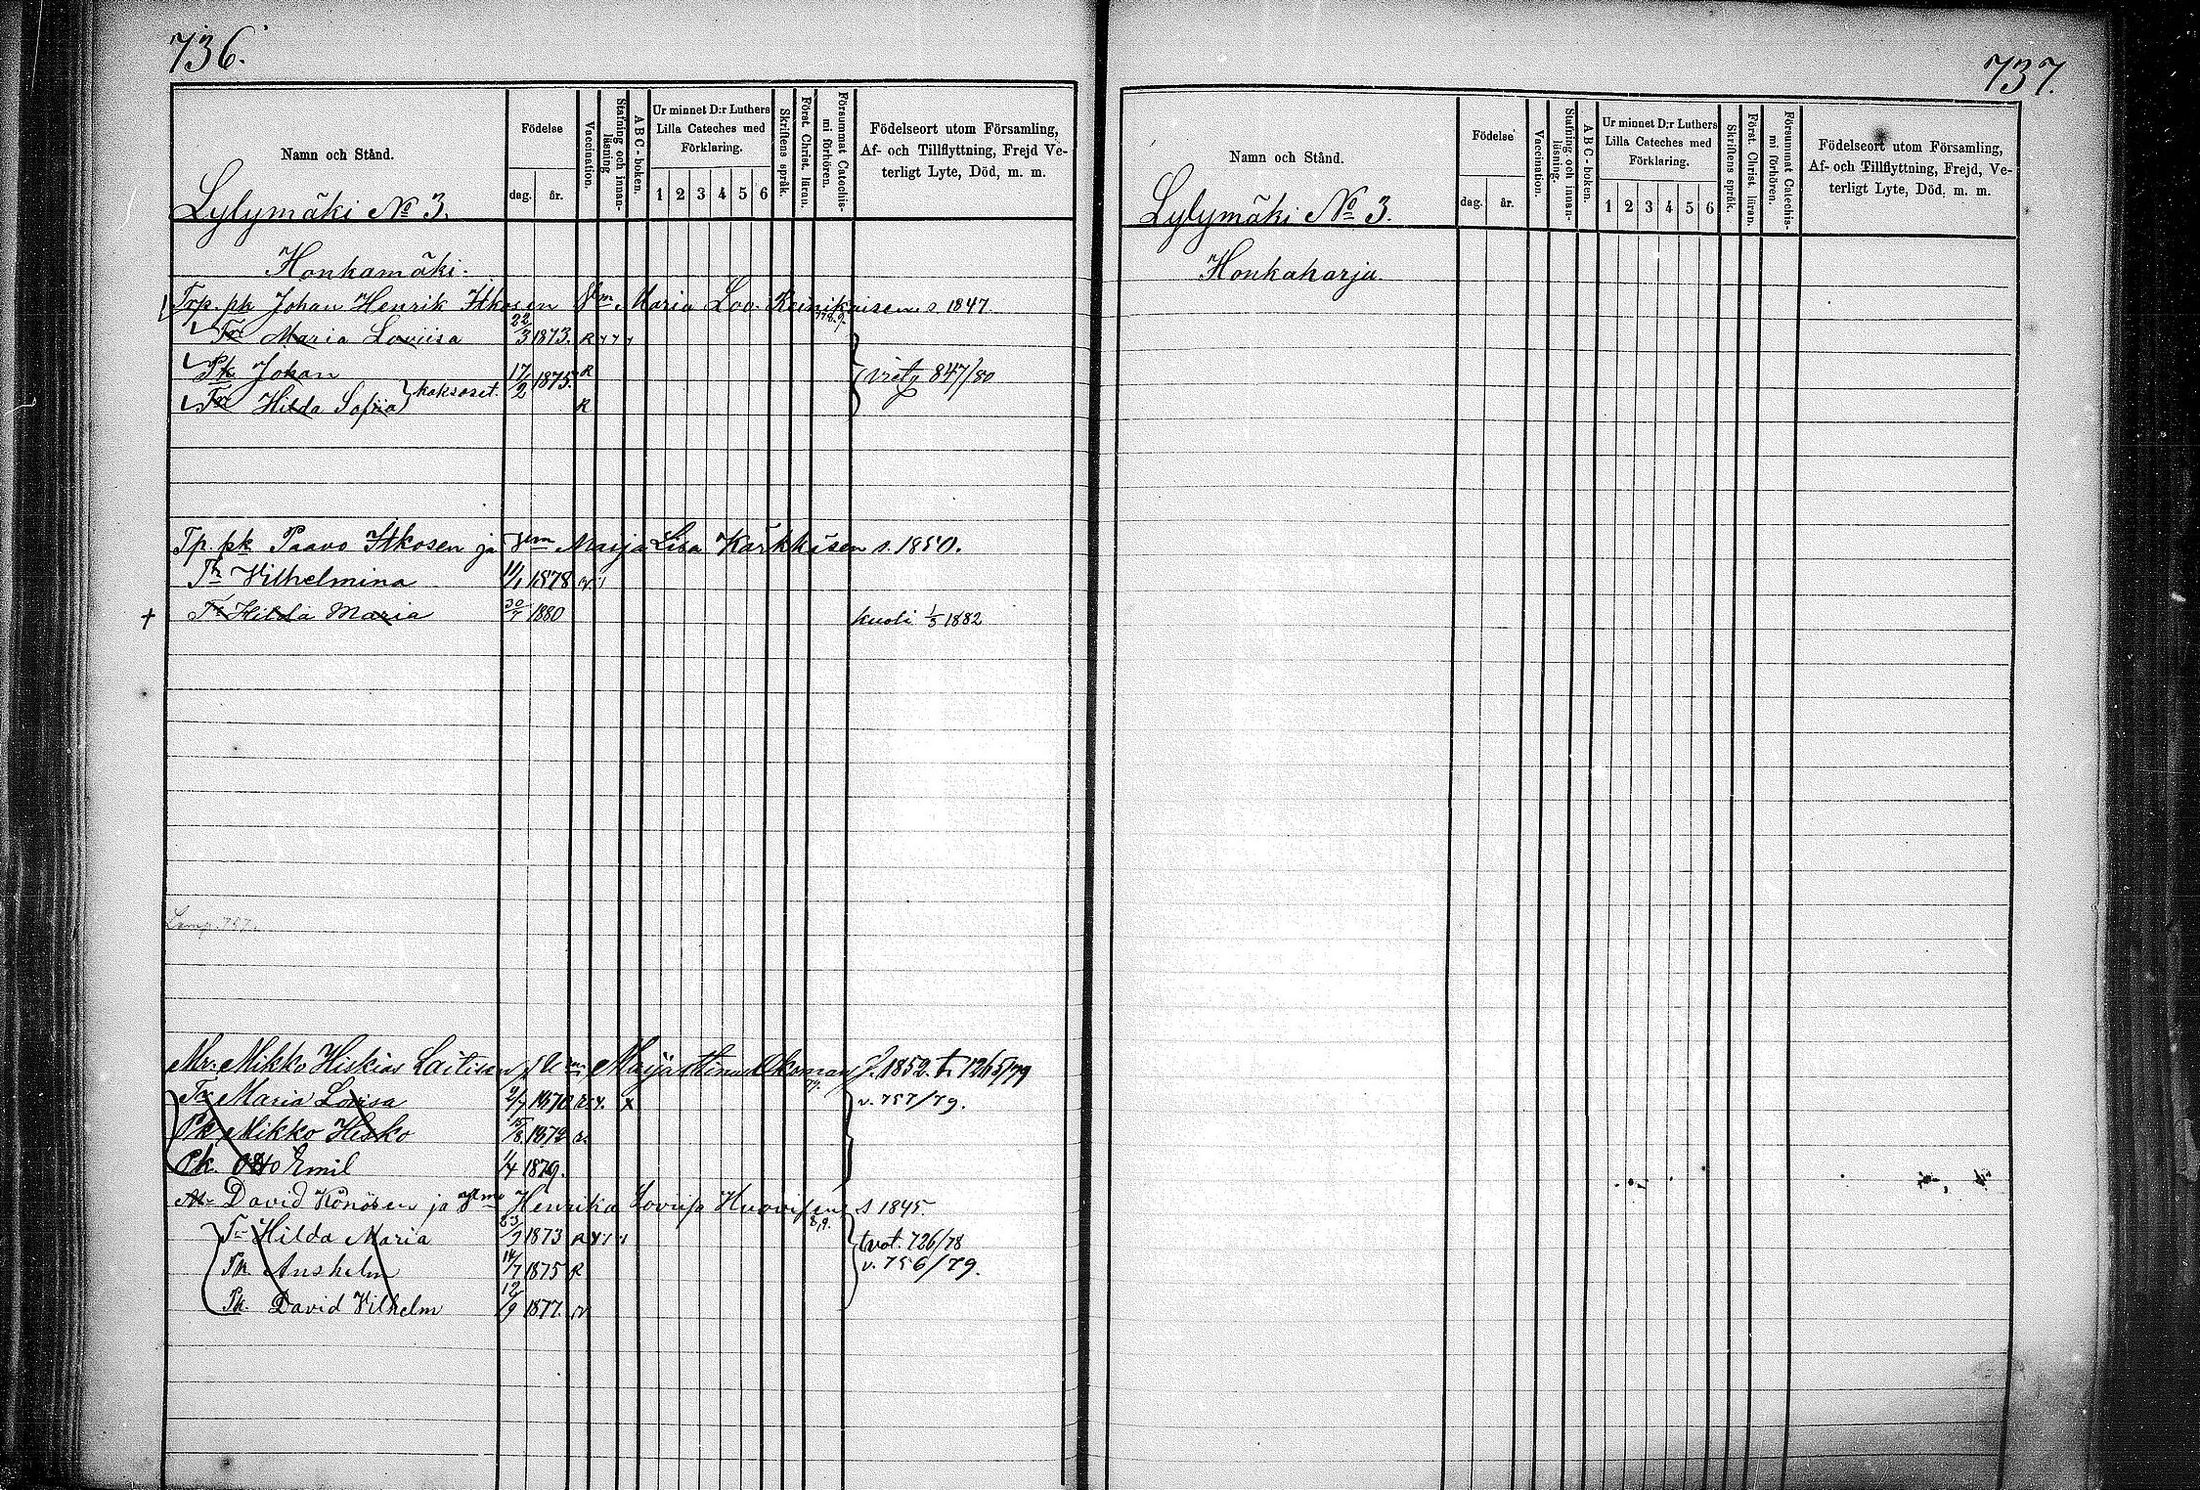 736.
Namn och Stånd.
Födelse
dag. år.
Vaccination.
Stafning och innanläsning
ABC-boken.
Ur minnet D:r Luthers
Lilla Cateches med
Förklaring.
1 2 3 4 5 6
Skriftens språk.
Först. Christ. läran.
Försummat Catechismi förhören.
Födelseort utom Församling,
Af- och Tillflyttning, Frejd Ve-
terligt Lyte, Död, m. m.
Lylymäki No 3.
Honkamäki.
Trp. pk Johan Henrik Itkosen Vm Maria Lov. Reinikaisen s 1847.
Tr Maria Loviisa 22/3 1873. R
Pk Johan 17/2 1875. R
Tr Hilda Sofiia kaksoset. R
vietg 847/80
Tp. pk Paavo Itkosen ja Vm Maija Lisa Kärkkäsen s. 1850.
Tr Vilhelmina 11/1 1878
+ Tr Hilda Maria 30/7 1880 kuoli 1/5 1882
Mr. Mikko Hiskias Laitisen Maija Stina Okoman f. 1852. t. 1265/79
Tr Maria Lovisa 2/7 1870 v. 757/79.
Pk Mikko Hisko 15/8 1872
Pk. Otto Emil 1/4 1879.
Mr David Könösen ja Vm Henrika Loviisa s 1845
Tr Hilda Maria 23/9 1873 R tvot. 726/78
Pk Anshelm 14/7 1875 R v. 756/79.
Pk. David Vilhelm 12/9 1877.
737.
Namn och Stånd.
Födelse
dag. år.
Vaccination.
Stafning och innanläsning.
ABC-boken.
Ur minnet D:r Luthers
Lilla Cateches med
Förklaring.
1 2 3 4 5 6
Skriftens språk.
Först. Christ. läran.
Försummat Catechismi förhören.
Födelseort utom Församling,
Af- och Tillflyttning, Frejd, Ve-
terligt Lyte, Död, m. m.
Lylymäki No 3.
Honkaharju.